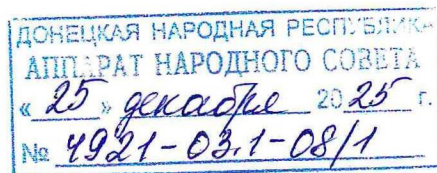 ДОНЕЦКАЯ НАРОДНАЯ РЕСПУБЛИКА
АППАРАТ НАРОДНОГО СОВЕТА
« 25 » декабря 2025 г.
№ 4921-03.1-08/1